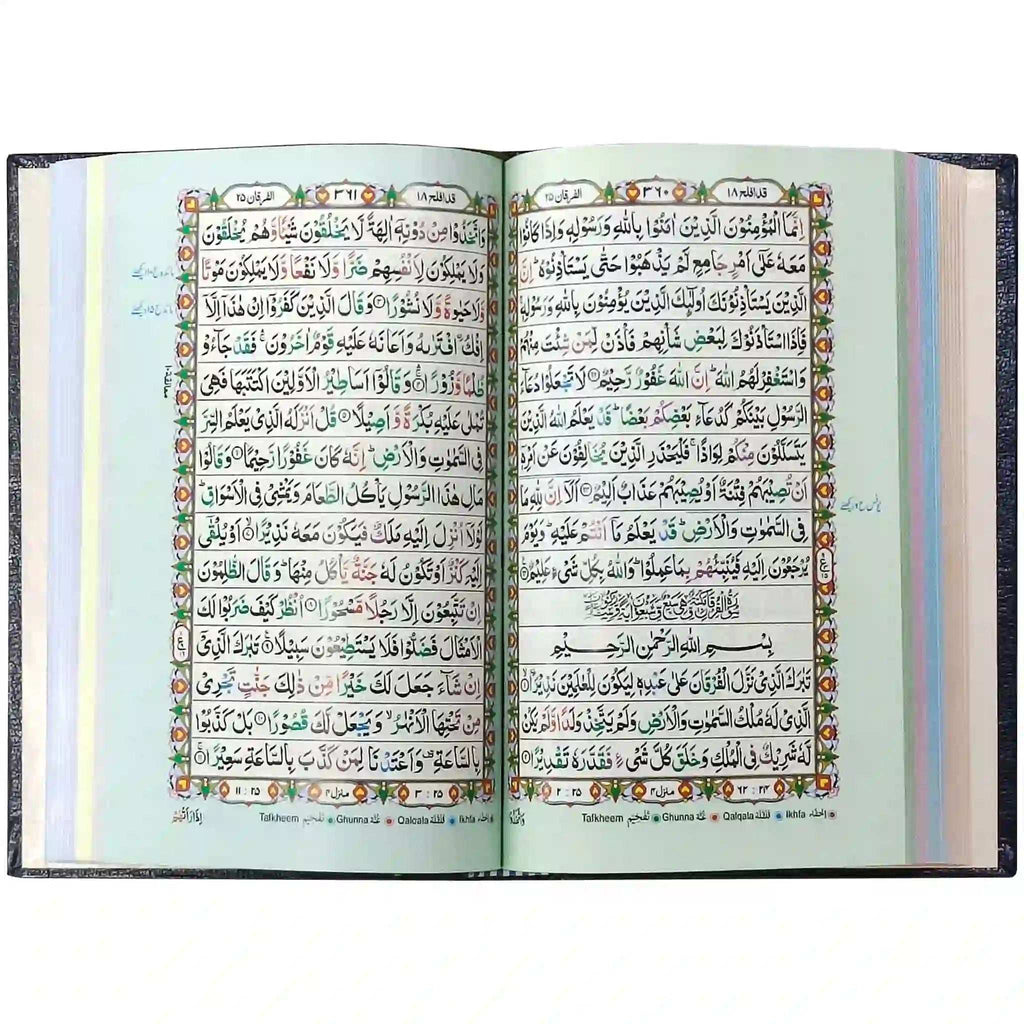 قد افلح ١٨
٣٦٠
الفرقان ٢٥
اِنَّمَا الْمُؤْمِنُوْنَ الَّذِيْنَ اٰمَنُوْا بِاللّٰهِ وَرَسُوْلِهٖ وَاِذَا كَانُوْا
مَعَهٗ عَلٰٓى اَمْرٍ جَامِعٍ لَّمْ يَذْهَبُوْا حَتّٰى يَسْتَاْذِنُوْهُ ؕ اِنَّ
الَّذِيْنَ يَسْتَاْذِنُوْنَكَ اُولٰٓئِكَ الَّذِيْنَ يُؤْمِنُوْنَ بِاللّٰهِ وَرَسُوْلِهٖ ۚ
فَاِذَا اسْتَاْذَنُوْكَ لِبَعْضِ شَاْنِهِمْ فَاْذَنْ لِّمَنْ شِئْتَ مِنْهُمْ
وَاسْتَغْفِرْ لَهُمُ اللّٰهَ ؕ اِنَّ اللّٰهَ غَفُوْرٌ رَّحِيْمٌ ۝۶۲ لَا تَجْعَلُوْا دُعَآءَ
الرَّسُوْلِ بَيْنَكُمْ كَدُعَآءِ بَعْضِكُمْ بَعْضًا ؕ قَدْ يَعْلَمُ اللّٰهُ الَّذِيْنَ
يَتَسَلَّلُوْنَ مِنْكُمْ لِوَاذًا ۚ فَلْيَحْذَرِ الَّذِيْنَ يُخَالِفُوْنَ عَنْ اَمْرِهٖٓ
اَنْ تُصِيْبَهُمْ فِتْنَةٌ اَوْ يُصِيْبَهُمْ عَذَابٌ اَلِيْمٌ ۝۶۳ اَلَآ اِنَّ لِلّٰهِ مَا
فِى السَّمٰوٰتِ وَالْاَرْضِ ؕ قَدْ يَعْلَمُ مَآ اَنْتُمْ عَلَيْهِ ؕ وَيَوْمَ
يُرْجَعُوْنَ اِلَيْهِ فَيُنَبِّئُهُمْ بِمَا عَمِلُوْا ؕ وَاللّٰهُ بِكُلِّ شَىْءٍ عَلِيْمٌ ۝۶۴
بِسْمِ اللّٰهِ الرَّحْمٰنِ الرَّحِيْمِ
تَبٰرَكَ الَّذِىْ نَزَّلَ الْفُرْقَانَ عَلٰى عَبْدِهٖ لِيَكُوْنَ لِلْعٰلَمِيْنَ نَذِيْرًا ۝۱
الَّذِىْ لَهٗ مُلْكُ السَّمٰوٰتِ وَالْاَرْضِ وَلَمْ يَتَّخِذْ وَلَدًا وَّلَمْ يَكُنْ
لَّهٗ شَرِيْكٌ فِى الْمُلْكِ وَخَلَقَ كُلَّ شَىْءٍ فَقَدَّرَهٗ تَقْدِيْرًا ۝۲
٢٤ : ٦٢
منزل ٤
٢٥ : ٢
Ikhfa اخفاء Qalqala قلقلة Ghunna غنّة Tafkheem تفخيم
قد افلح ١٨
٣٦١
الفرقان ٢٥
وَاتَّخَذُوْا مِنْ دُوْنِهٖٓ اٰلِهَةً لَّا يَخْلُقُوْنَ شَيْئًا وَّهُمْ يُخْلَقُوْنَ
وَلَا يَمْلِكُوْنَ لِاَنْفُسِهِمْ ضَرًّا وَّلَا نَفْعًا وَّلَا يَمْلِكُوْنَ مَوْتًا
وَّلَا حَيٰوةً وَّلَا نُشُوْرًا ۝۳ وَقَالَ الَّذِيْنَ كَفَرُوْٓا اِنْ هٰذَآ اِلَّآ
اِفْكٌ افْتَرٰىهُ وَاَعَانَهٗ عَلَيْهِ قَوْمٌ اٰخَرُوْنَ ۛۚ فَقَدْ جَآءُوْ
ظُلْمًا وَّزُوْرًا ۝۴ وَقَالُوْٓا اَسَاطِيْرُ الْاَوَّلِيْنَ اكْتَتَبَهَا فَهِىَ
تُمْلٰى عَلَيْهِ بُكْرَةً وَّاَصِيْلًا ۝۵ قُلْ اَنْزَلَهُ الَّذِىْ يَعْلَمُ السِّرَّ
فِى السَّمٰوٰتِ وَالْاَرْضِ ؕ اِنَّهٗ كَانَ غَفُوْرًا رَّحِيْمًا ۝۶ وَقَالُوْا
مَالِ هٰذَا الرَّسُوْلِ يَاْكُلُ الطَّعَامَ وَيَمْشِىْ فِى الْاَسْوَاقِ ؕ
لَوْلَآ اُنْزِلَ اِلَيْهِ مَلَكٌ فَيَكُوْنَ مَعَهٗ نَذِيْرًا ۝۷ اَوْ يُلْقٰٓى
اِلَيْهِ كَنْزٌ اَوْ تَكُوْنُ لَهٗ جَنَّةٌ يَّاْكُلُ مِنْهَا ؕ وَقَالَ الظّٰلِمُوْنَ
اِنْ تَتَّبِعُوْنَ اِلَّا رَجُلًا مَّسْحُوْرًا ۝۸ اُنْظُرْ كَيْفَ ضَرَبُوْا لَكَ
الْاَمْثَالَ فَضَلُّوْا فَلَا يَسْتَطِيْعُوْنَ سَبِيْلًا ۝۹ تَبٰرَكَ الَّذِىْٓ
اِنْ شَآءَ جَعَلَ لَكَ خَيْرًا مِّنْ ذٰلِكَ جَنّٰتٍ تَجْرِىْ
مِنْ تَحْتِهَا الْاَنْهٰرُ ۙ وَيَجْعَلْ لَّكَ قُصُوْرًا ۝۱۰ بَلْ كَذَّبُوْا
بِالسَّاعَةِ ۟ وَاَعْتَدْنَا لِمَنْ كَذَّبَ بِالسَّاعَةِ سَعِيْرًا ۝۱۱
٢٥ : ٣
منزل ٤
٢٥ : ١١
اِذَا رَاَتْهُمْ
Ikhfa اخفاء Qalqala قلقلة Ghunna غنّة Tafkheem تفخيم